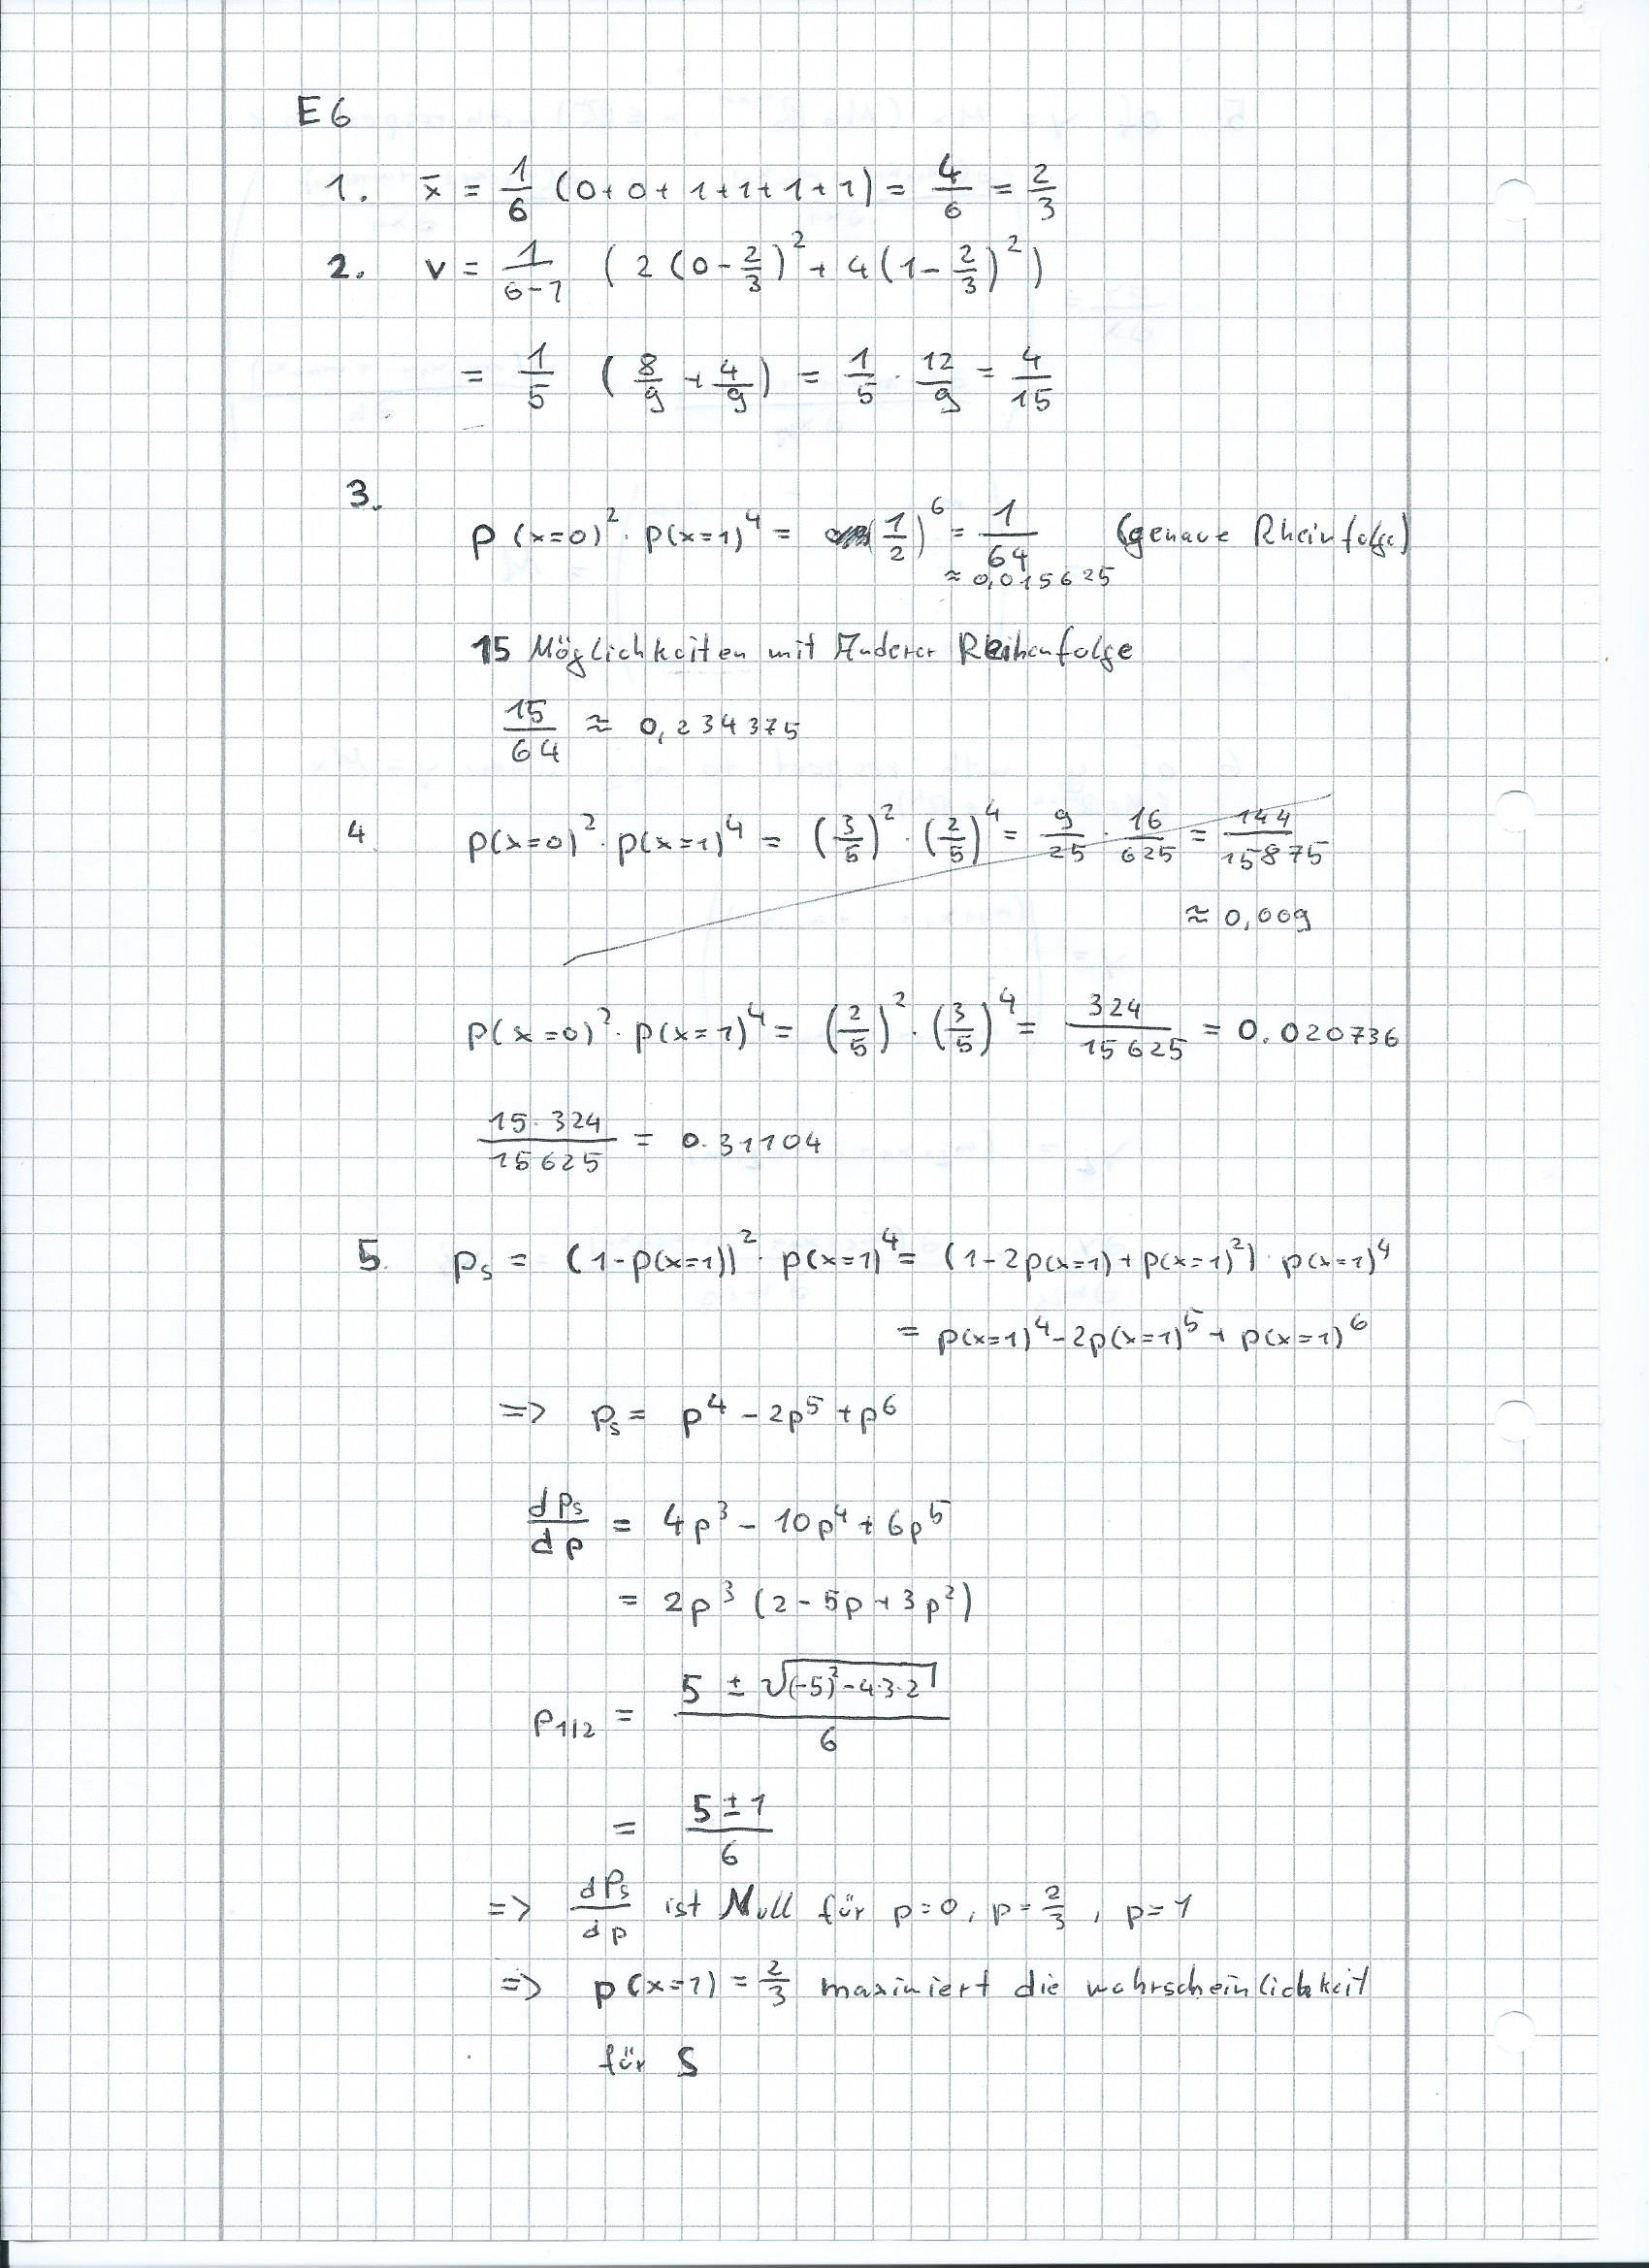 E6
1. x̄ = 1/6 (0+0+1+1+1+1) = 4/6 = 2/3
2. v = 1/(6-1) (2(0-2/3)² + 4(1-2/3)²)
= 1/5 (8/9 + 4/9) = 1/5 · 12/9 = 4/15
3.
p(x=0)² · p(x=1)⁴ = (1/2)⁶ = 1/64 (genaue Rheinfolge)
≈ 0,015625
15 Möglichkeiten mit Anderer Reihenfolge
15/64 ≈ 0,234375
4. p(x=0)² · p(x=1)⁴ = (3/5)² · (2/5)⁴ = 9/25 · 16/625 = 144/15875
≈ 0,009
p(x=0)² · p(x=1)⁴ = (2/5)² · (3/5)⁴ = 324/15625 = 0.020736
15·324/15625 = 0.31104
5. pₛ = (1-p(x=1))² · p(x=1)⁴ = (1-2p(x=1)+p(x=1)²) · p(x=1)⁴
= p(x=1)⁴ - 2p(x=1)⁵ + p(x=1)⁶
=> pₛ = p⁴ - 2p⁵ + p⁶
dpₛ/dp = 4p³ - 10p⁴ + 6p⁵
= 2p³ (2 - 5p + 3p²)
p1/2 = (5 ± √((-5)²-4·3·2))/6
= (5±1)/6
=> dpₛ/dp ist Null für p=0, p=2/3, p=1
=> p(x=1) = 2/3 maximiert die wahrscheinlichkeit
für S